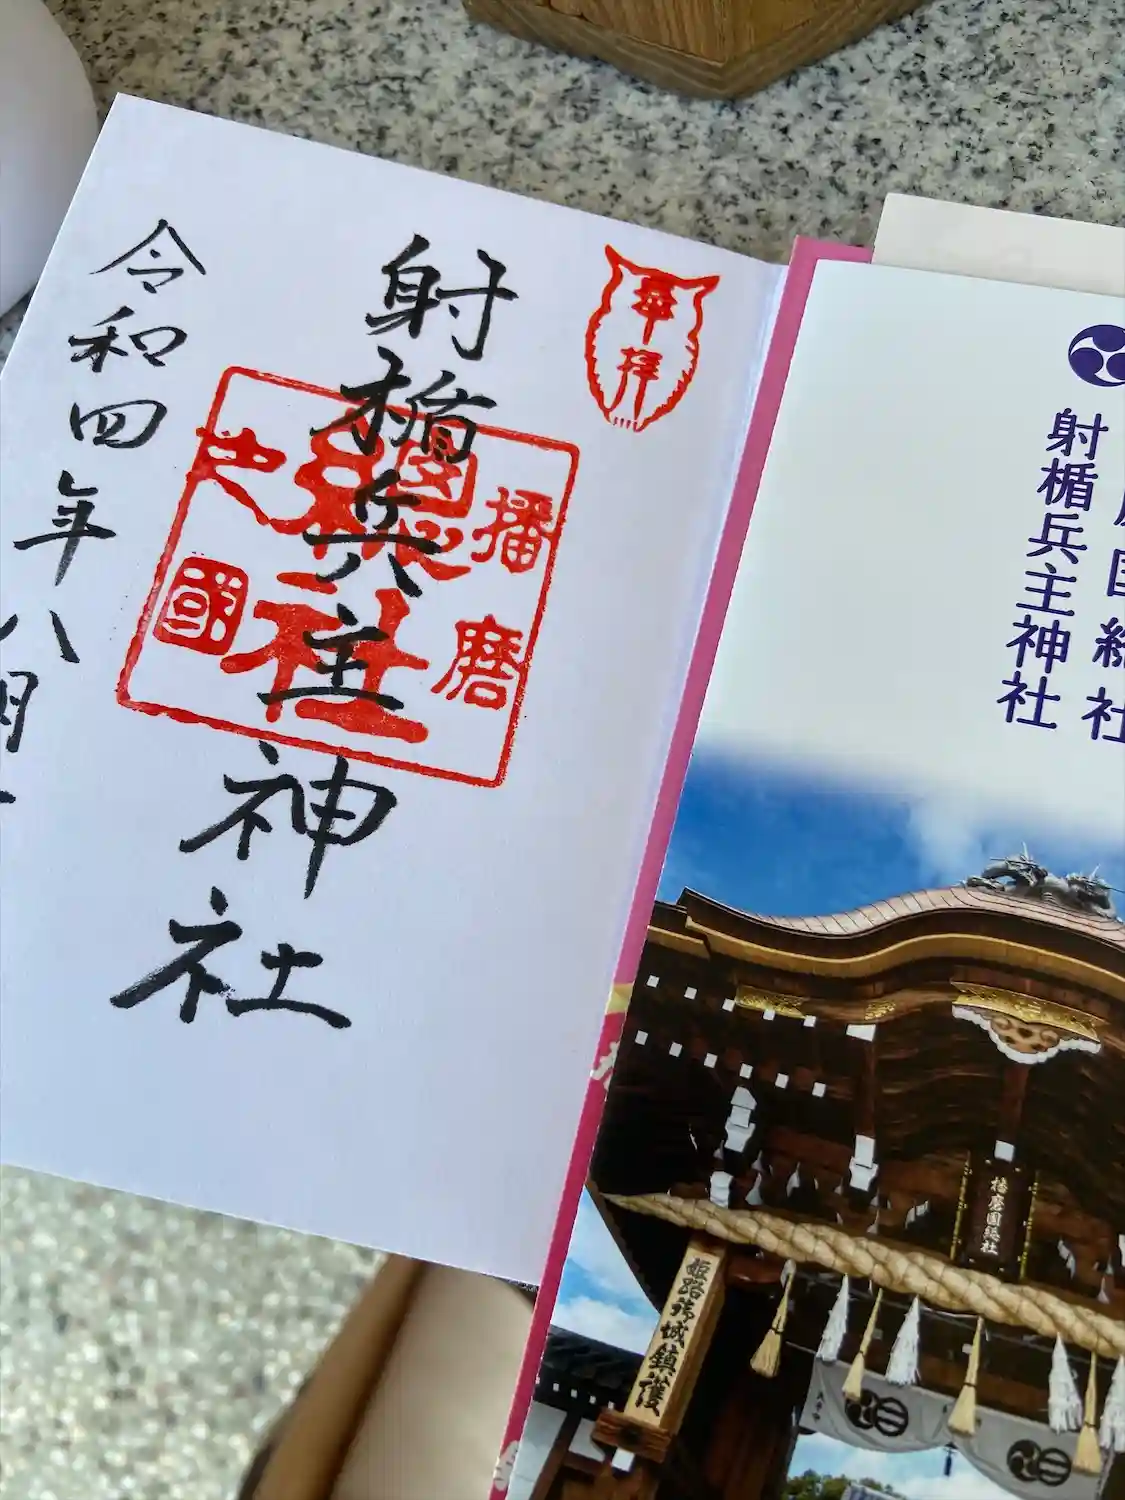 奉拝
射楯兵主神社
播磨
國
総社
之
國
令和四年八月
国総社
射楯兵主神社
播磨国総社
姫路城鎮護